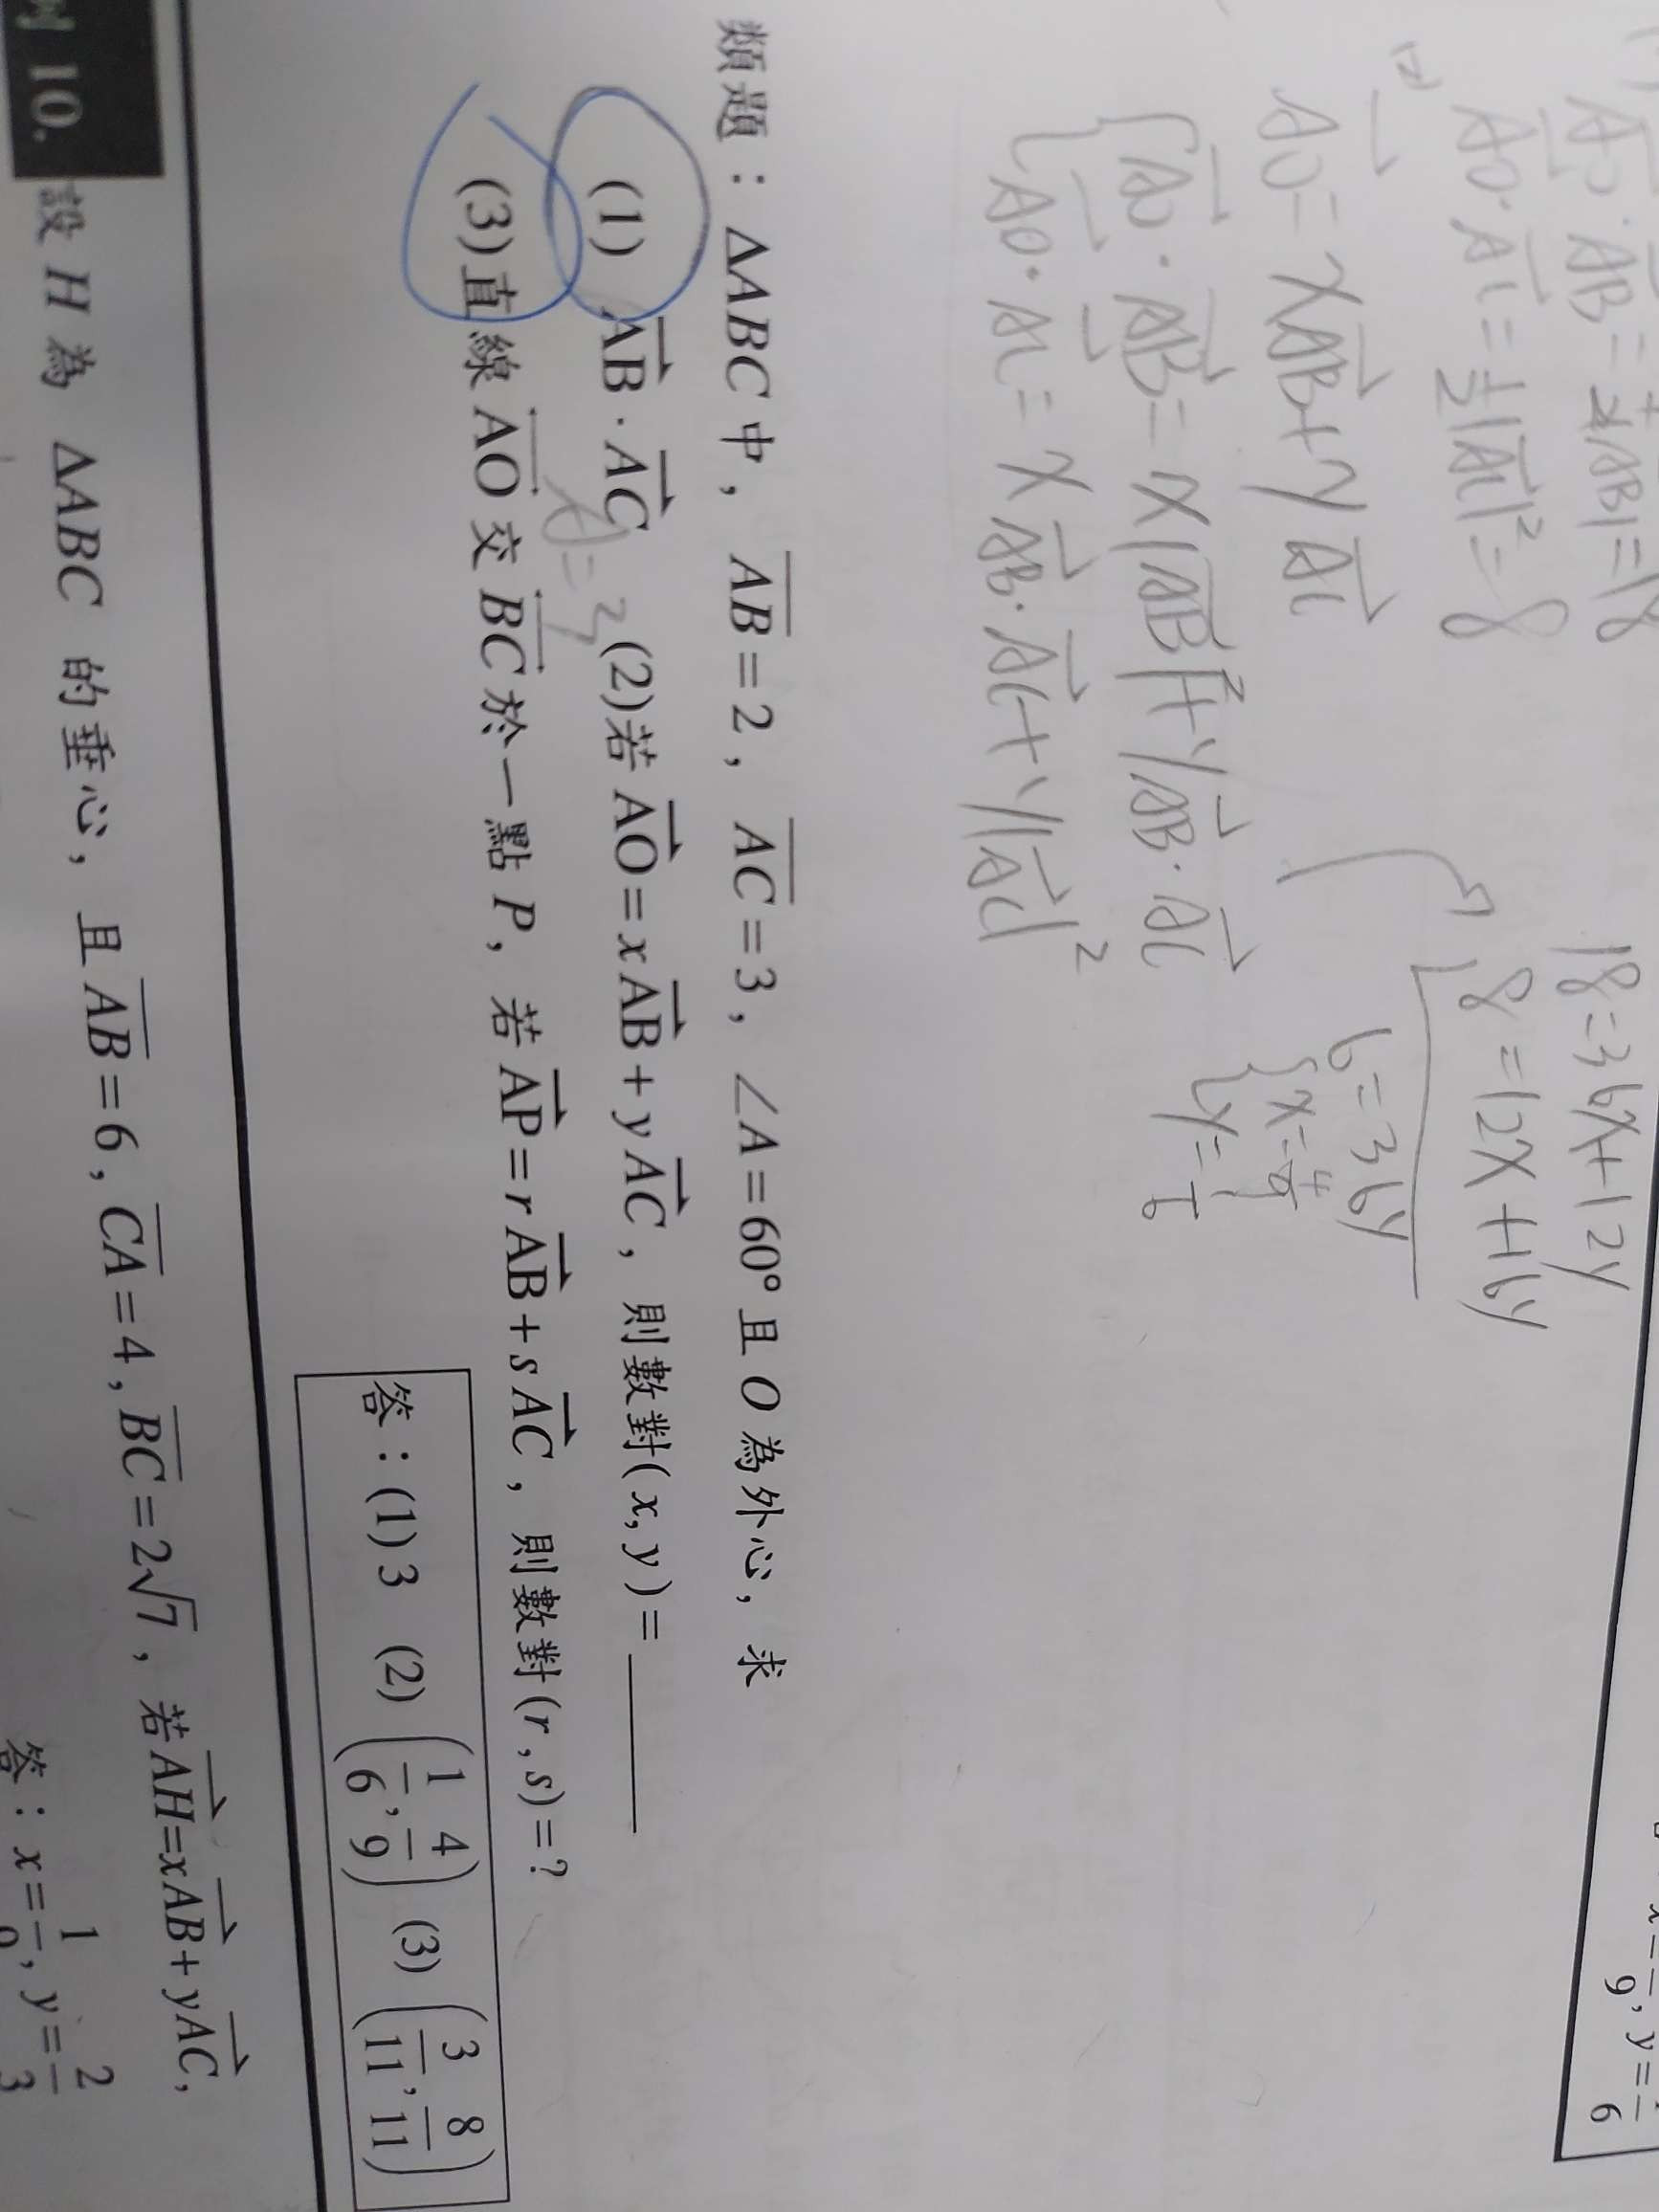 AO·AB=½|AB|=18
(2) AO·AC=½|AC|²=8
AO=xAB+yAC
AO·AB=x|AB|²+yAB·AC
AO·AC=xAB·AC+y|AC|²
18=36x+12y
8=12x+16y
6=36y
x=4/9
y=1/6
9, y=
6
類題：ΔABC中，AB=2，AC=3，∠A=60°且O為外心，求
(1) AB·AC (2)若AO=xAB+yAC，則數對(x,y)=______
(3)直線AO交BC於一點P，若AP=rAB+sAC，則數對(r,s)=?
答：(1)3 (2)(1/6, 4/9) (3)(3/11, 8/11)
10. 設H為ΔABC的垂心，且AB=6,CA=4,BC=2√7，若AH=xAB+yAC,
答：x=1/9, y=2/3